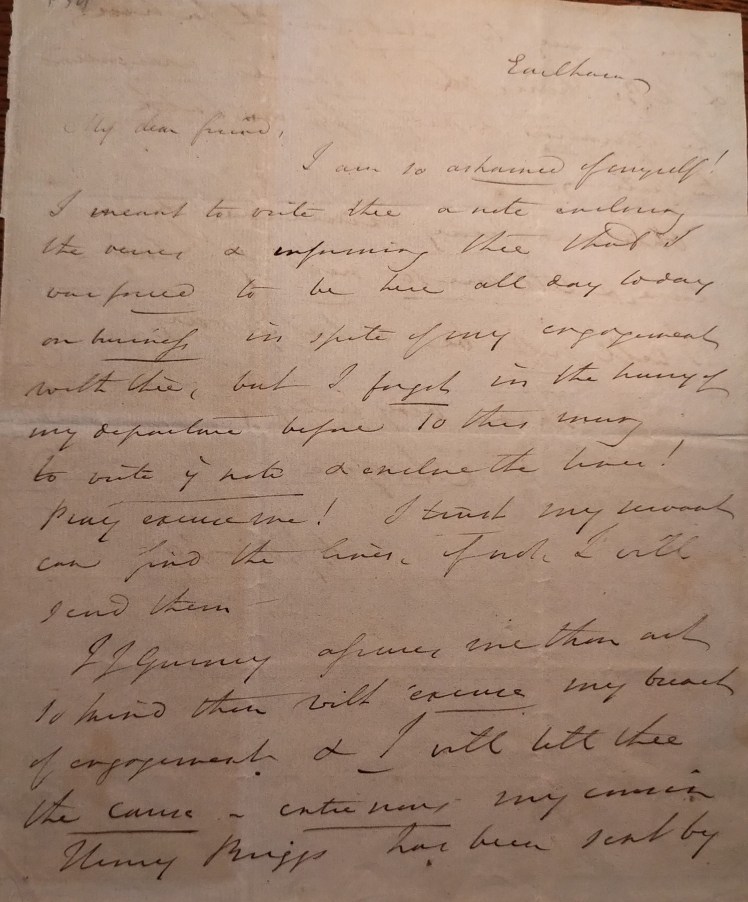 Earlham
My dear friend,
I am so ashamed of myself!
I meant to write thee a note enclosing
the verses & informing thee that I
was forced to be here all day today
on business in spite of my engagement
with thee, but I forgot in the hurry of
my departure before 10 this morng
to write ye note & enclose the lines!
Pray excuse me! I trust my servant
can find the lines, if not, I will
send them
J J Gurney assures me thou art
so kind thou wilt excuse my breach
of engagement & I will tell thee
the cause - entre nous my cousin
Henry Briggs has been sent by